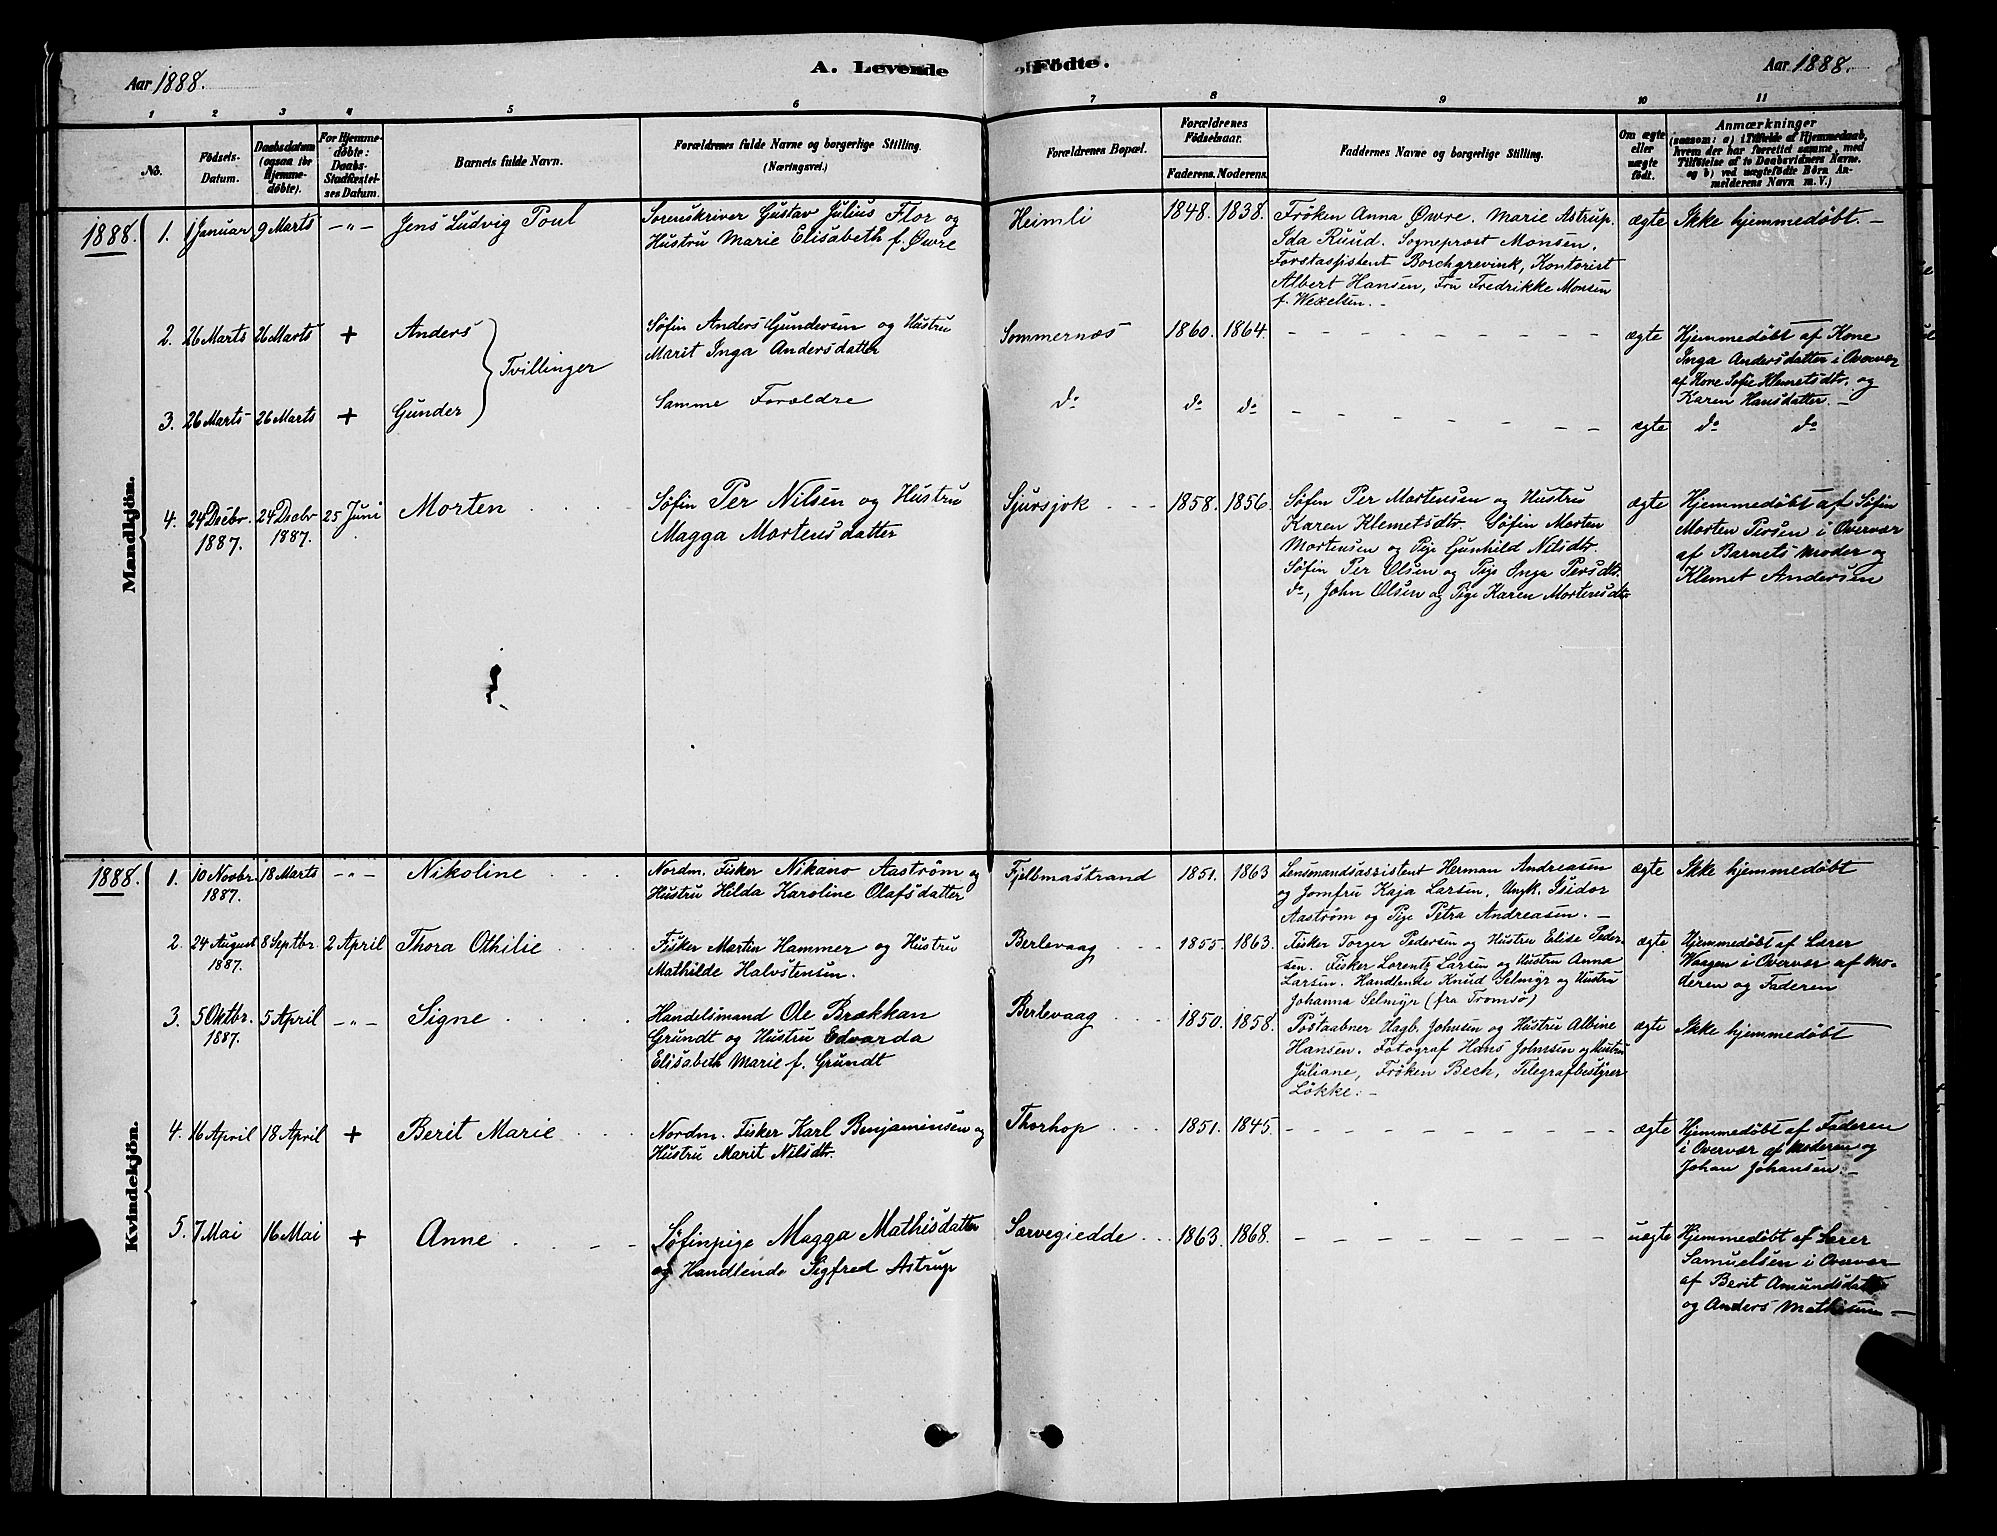 A. Levende Födte.
Aar 1888.
Aar 1888.
1 2 3 4 5 6 7 8 9 10 11
No.
Födsels-Datum.
Daabsdatum (ogsaa for Hjemmedøbte).
For Hjemmedøbte: Daabs-Stadfæstelses Datum.
Barnets fulde Navn.
Forældrenes fulde Navne og borgerlige Stilling. (Næringsvei.)
Forældrenes Bopæl.
Forældrenes Fødselsaar.
Faderens. Moderens.
Faddernes Navne og borgerlige Stilling.
Om ægte eller uægte født.
Anmærkninger
(saasom: a) i Tilfælde af Hjemmedaab,
hvem der har forrettet samme, med
Tilføielse af to Daabsvidners Navne.
og b) ved uægtefödte Börn An-
melderens Navn m. V.)
Mandkjön.
1888. 1. 1 Januar 9 Marts -"- Jens Ludvig Poul
Sorenskriver Gustav Julius Flor og
Hustru Marie Elisabeth f. Øvre
Heimli 1848. 1838.
Frøken Anna Øvre. Marie Astrup.
Ida Ruud. Sogneprest Monsen.
Forstassistent Borchgrevink, Kontorist
Albert Hansen, Fru Fredrikke Monsen
f. Wexelsen. -
ægte Ikke hjemmedøbt. -
2. 26 Marts 26 Marts + Anders
Tvillinger
Søfin Anders Gundersen og Hustru
Marit Inga Andersdatter
Sommernæs 1860. 1864. - - - - - - - - ægte
Hjemmedøbt af Kone
Inga Andersdatter i Overvær
af Kone Sofie Klemetsdtr. og
Karen Hansdatter. -
3. 26 Marts 26 Marts + Gunder
Samme Forældre
do do do - - - - - - - - ægte do do
4. 24 Decbr. 1887. 24 Decbr 1887. 25 Juni Morten
Søfin Per Nilsen og Hustru
Magga Mortensdatter
Sjursjok 1858. 1856.
Søfin Per Mortensen og Hustru
Karen Klemetsdtr. Søfin Morten
Mortensen og Pige Gunhild Nilsdtr.
Søfin Per Olsen og Pige Inga Persdtr.
do, John Olsen og Pige Karen Mortensdtr
ægte
Hjemmedøbt af Søfin
Morten Persen i Overvær
af Barnets Moder og
Klemet Andersen
Kvindekjön.
1888. 1. 10 Novbr. 1887. 18 Marts -"- Nikoline
Nordm. Fisker Nikano Aaström og
Hustru Hilda Karoline Olafsdatter
Fjelbmastrand 1851. 1863
Lensmandsassistent Herman Andreasen
og Jomfru Kaja Larsen, Ungk. Isidor
Aaström og Pige Petra Andreasen. -
ægte Ikke hjemmedøbt
2. 24 August 1887. 8 Septbr. 2 April Thora Othilie
Fisker Martin Hammer og Hustru
Mathilde Halvstensen.
Berlevaag 1855. 1863.
Fisker Torger Pedersen og Hustru Elise Peder-
sen. Fisker Lorentz Larsen og Hustru Anna
Larsen. Handlende Knud Selmyr og Hustru
Johanna Selmyr (fra Tromsø)
ægte
Hjemmedøbt af Lærer
i Overvær af Mo-
deren og Faderen
3. 5 Oktbr. 1887. 5 April -"- Signe
Handelsmand Ole Brækkan
Grundt og Hustru Edvarda
Elisabeth Marie f. Grundt
Berlevaag 1850. 1858.
Postaabner Hagb. Johnsen og Hustru Albine
Hansen. Fotograf Hans Johnsen og Hustru
Juliane, Frøken Bech, Telegrafbestyrer
Løkke. -
ægte Ikke hjemmedøbt
4. 16 April 18 April + Berit Marie
Nordm. Fisker Karl Benjaminsen og
Hustru Marit Nilsdtr.
Thorhop 1851. 1845. - - - - - - - - ægte
Hjemmedøbt af Faderen
i Overvær af Moderen og
Johan Johansen. -
5. 7 Mai 16 Mai + Anne
Søfinpige Magga Mathisdatter
og Handlende Sigfred Astrup
Sarvegiedde 1863. 1868. - - - - - - - - uægte
Hjemmedøbt af Lærer
Samuelsen i Overvær
af Berit Amundsdatter
og Anders Mathisen -